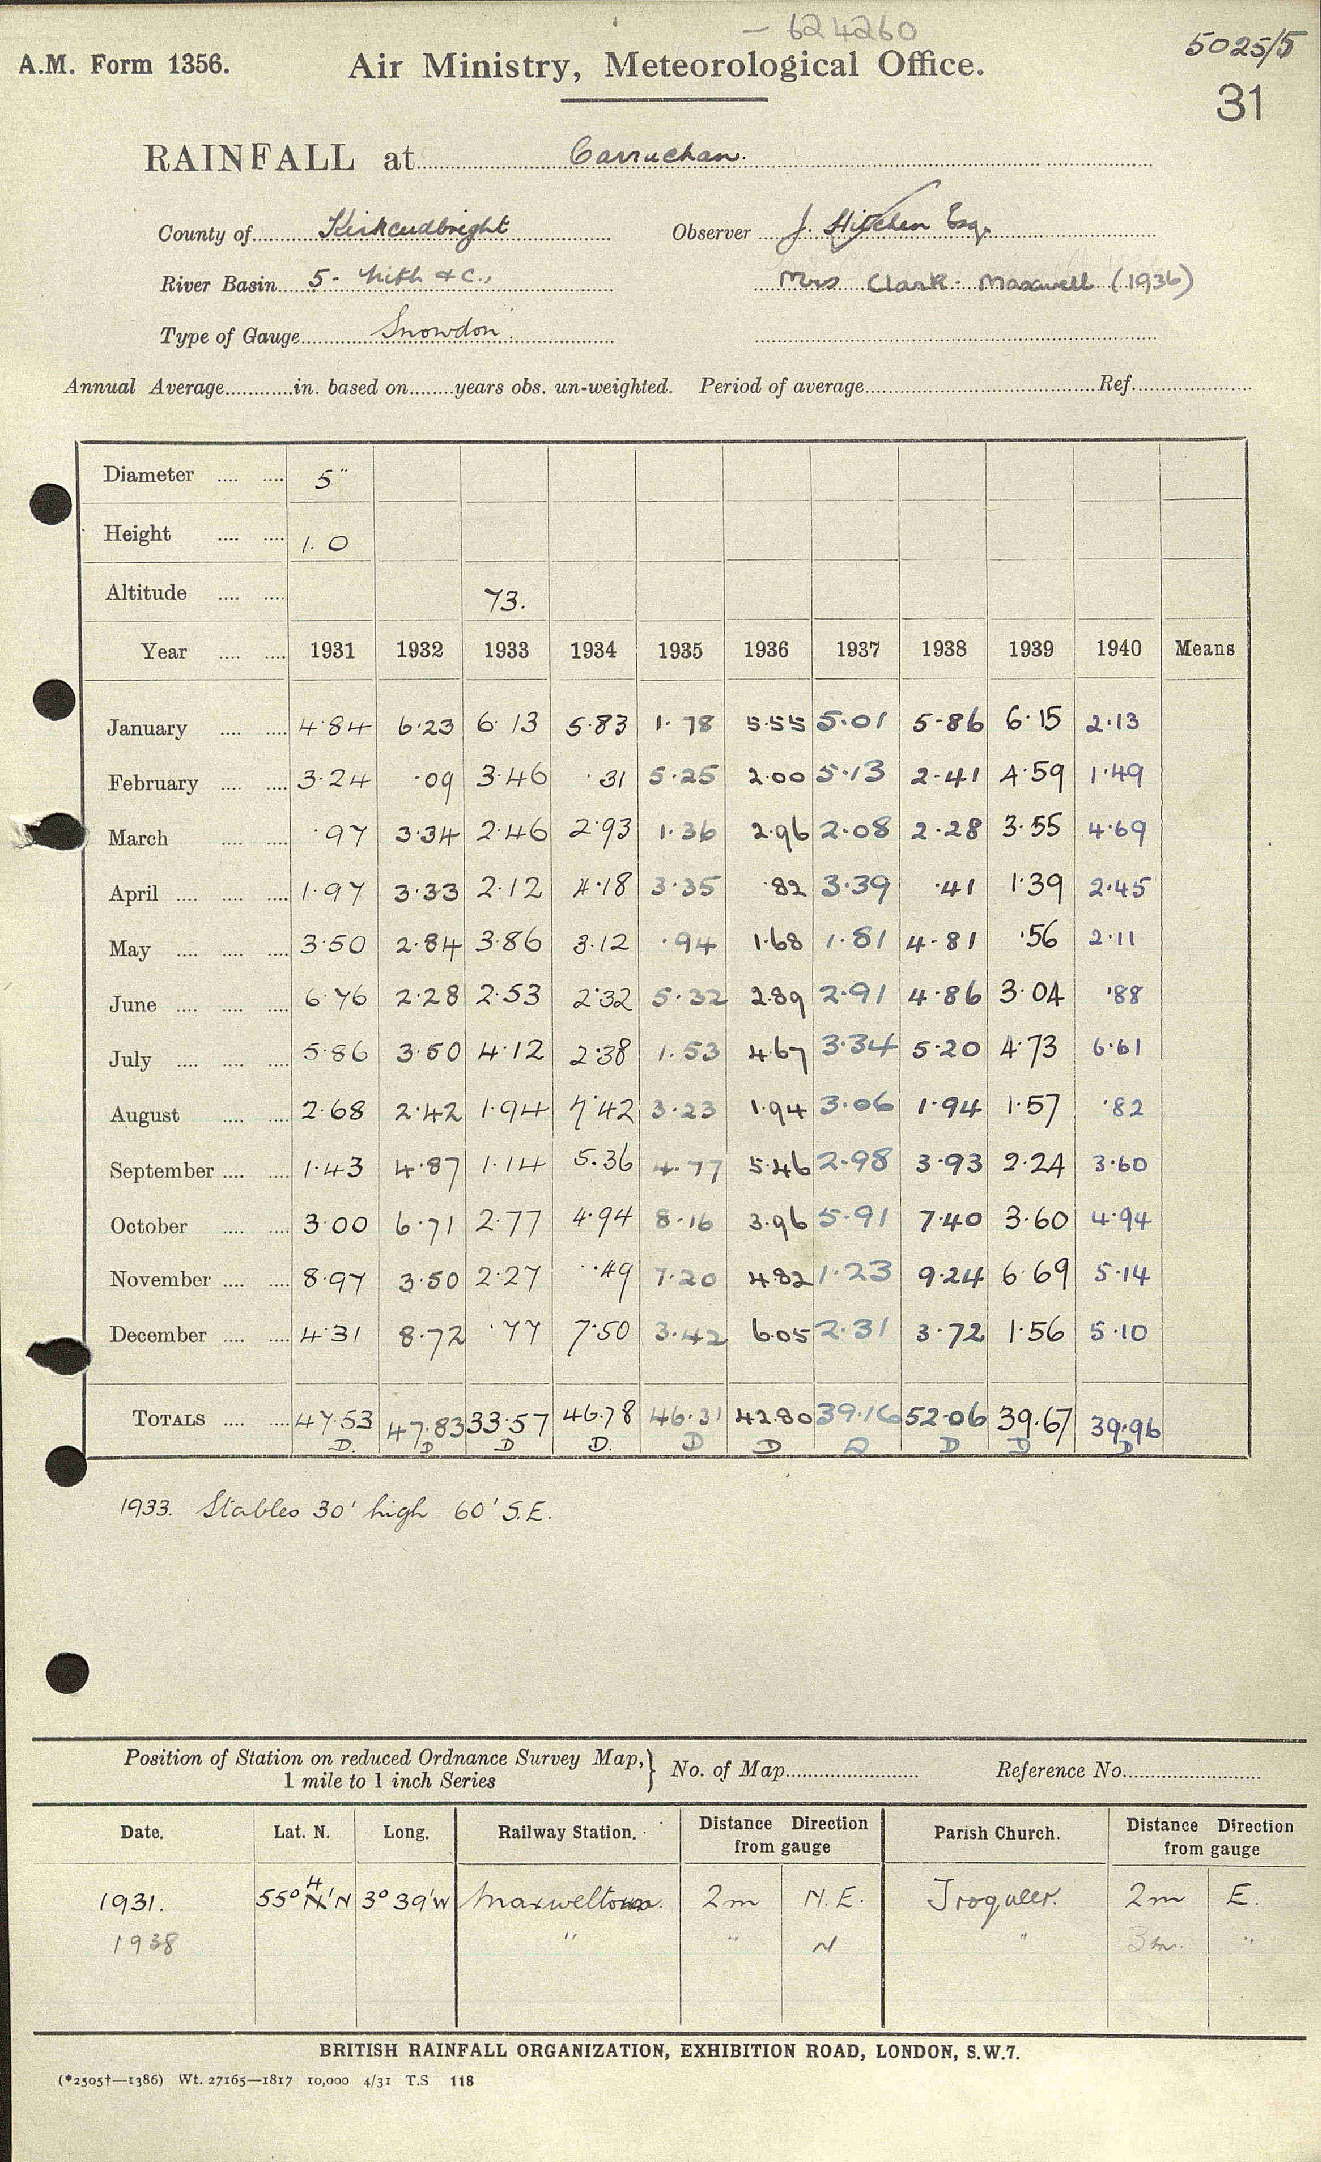 — 624260
5025/5
A.M. Form 1356.
Air Ministry, Meteorological Office.
31
RAINFALL at Carruchan.
County of Kirkcudbright Observer J. Hitchen Esq.
River Basin 5- Nith & C., Mrs Clark-Maxwell (1936)
Type of Gauge Snowdon
Annual Average in. based on years obs. un-weighted. Period of average Ref.
Diameter 5"
Height 1.0
Altitude 73.
Year 1931 1932 1933 1934 1935 1936 1937 1938 1939 1940 Means
January 4·84 6·23 6·13 5·83 1·78 5·55 5·01 5·86 6·15 2·13
February 3·24 ·09 3·46 ·31 5·25 2·00 5·13 2·41 4·59 1·49
March ·97 3·34 2·46 2·93 1·36 2·96 2·08 2·28 3·55 4·69
April 1·97 3·33 2·12 4·18 3·35 ·82 3·39 ·41 1·39 2·45
May 3·50 2·84 3·86 3·12 ·94 1·68 1·81 4·81 ·56 2·11
June 6·76 2·28 2·53 2·32 5·32 2·89 2·91 4·86 3·04 ·88
July 5·86 3·50 4·12 2·38 1·53 4·67 3·34 5·20 4·73 6·61
August 2·68 2·42 1·94 7·42 3·23 1·94 3·06 1·94 1·57 ·82
September 1·43 4·87 1·14 5·36 4·77 5·46 2·98 3·93 2·24 3·60
October 3·00 6·71 2·77 4·94 8·16 3·96 5·91 7·40 3·60 4·94
November 8·97 3·50 2·27 ·49 7·20 4·82 1·23 9·24 6·69 5·14
December 4·31 8·72 ·77 7·50 3·42 6·05 2·31 3·72 1·56 5·10
TOTALS 47·53 47·83 33·57 46·78 46·31 42·80 39·16 52·06 39·67 39·96
D. D D D. D D D D D D
1933. Stables 30' high 60' S.E.
Position of Station on reduced Ordnance Survey Map, 1 mile to 1 inch Series } No. of Map Reference No.
Date. Lat. N. Long. Railway Station. Distance Direction from gauge Parish Church. Distance Direction from gauge
1931. 55° 4' N 3° 39' W Maxweltown. 2m N.E. Troqueer. 2m E.
1938 " " N " 3m. "
BRITISH RAINFALL ORGANIZATION, EXHIBITION ROAD, LONDON, S.W.7.
(*2505†—1386) Wt. 27165—1817 10,000 4/31 T.S 118